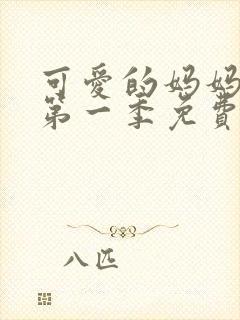 可爱的妈妈
第一季免費
八匹